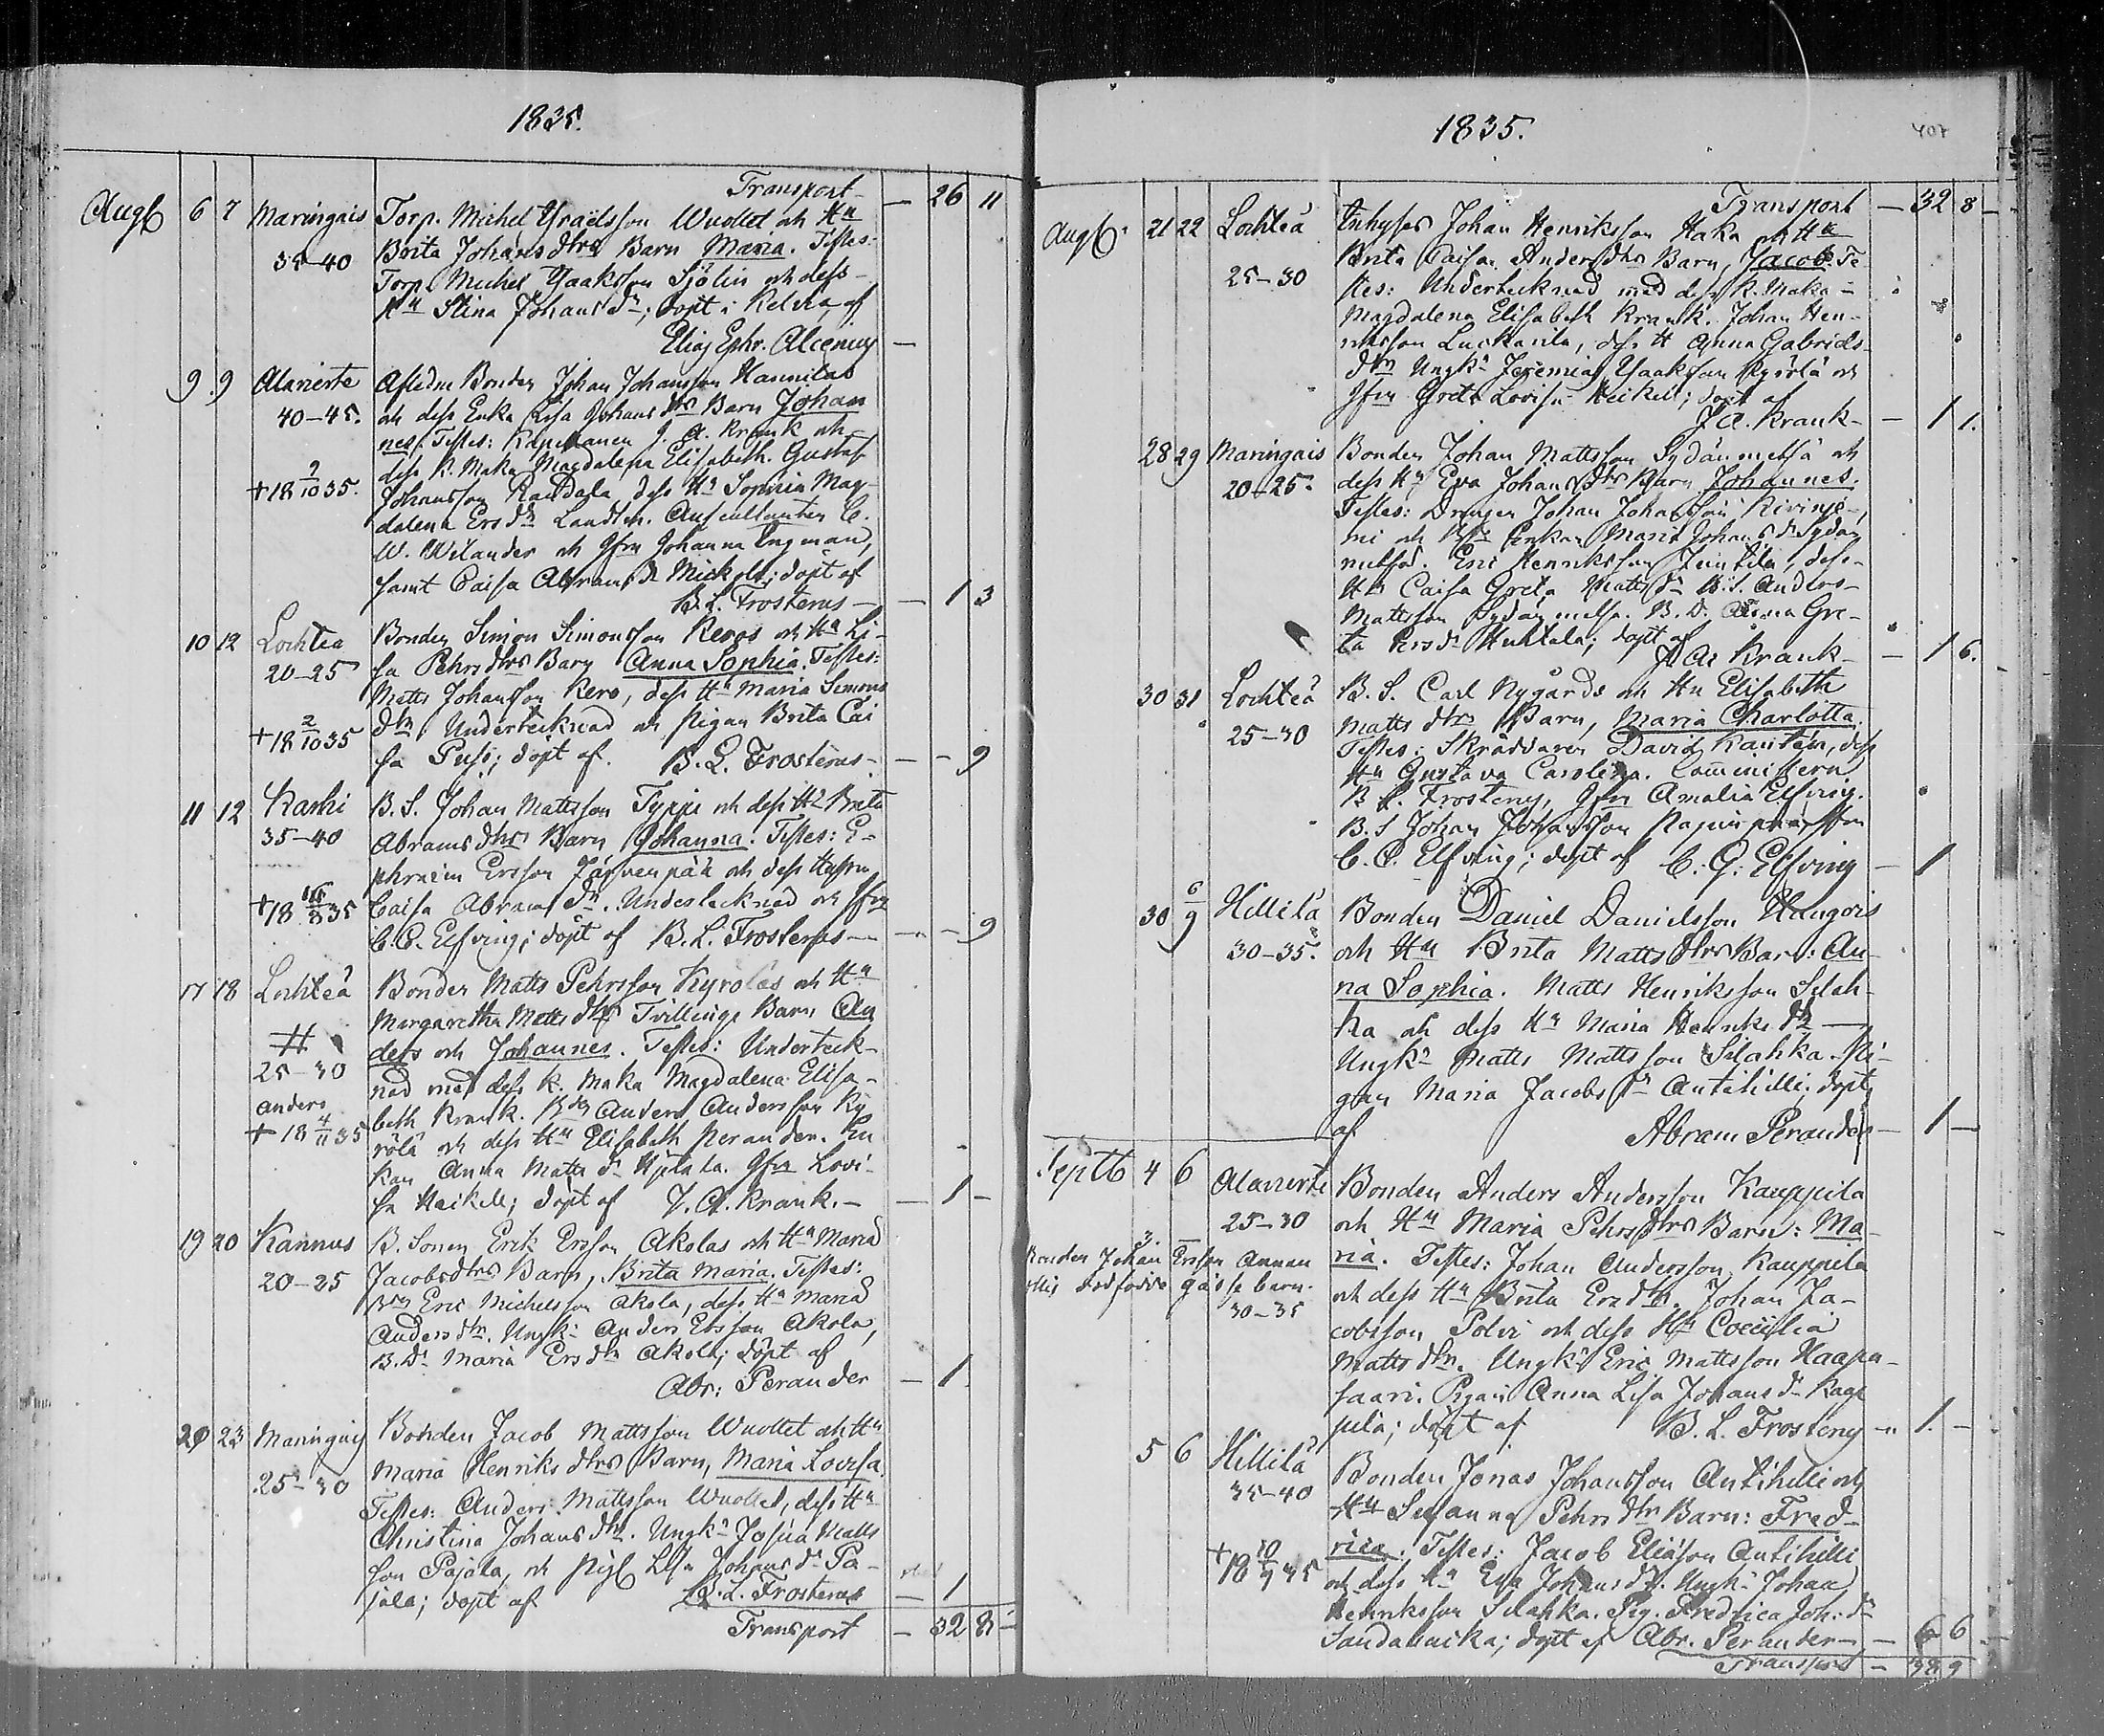 1835.
Transport — 26 11
Augt 6 7 Maringais Torp. Michel Ysraelsson Wuollet och Hu
35–40 Brita Johansdtrs Barn Maria. Testes:
Torp. Michel Ysaaksson Sjölin och dess
Hu Stina Johansdr; döpt i Kelviå af
Elias Ephr. Alcenius —
9 9 Alavierte Afledne Bonden Johan Johansson Hannilas
40–45. och dess Enka Lisa Johansdtrs Barn Johan
nes. Testes: Kapellanen J. A. Krank och
dess K. Maka Magdalena Elisabeth. Gustaf
+ 18 2/10 35. Johansson Raudala, dess Hu Sophia Mag-
dalena Ersdr Landtm. Auscultanten C.
W. Wilander och Jfru Johanna Engman,
samt Caisa Abramsdr Mickola; döpt af
B. L. Frosterus — — 1 3
10 12 Lochteå Bonden Simon Simonsson Keros och Hu Li-
20–25 sa Pehrsdtrs Barn Anna Sophia. Testes:
Matts Johansson Kero, dess Hu Maria Simons
+ 18 2/10 35 dtr Undertecknad och Pigan Brita Cai
sa Puss; döpt af B. L. Frosterus — — – 9
11 12 Karhi B. S. Johan Mattsson Typpi och dess Hu Brita
35–40 Abramsdtrs Barn Johanna. Testes: E-
phraim Ersson Järvenpää och dess Hustru
+ 18 /8 35 Caisa Abramsdr. Undertecknad och Jfru
C. C. Elfving; döpt af B. L. Frosterus — — – 9
17 18 Lochteå Bonden Matts Pehrsson Kyrolas och Hu
# Margaretha Mattsdtrs Tvillinge Barn An
ders och Johannes. Testes: Underteck-
25–30 nad med dess k. Maka Magdalena Elisa-
Anders beth Krank. Bdn Anders Andersson Ky
+ 18 4/11 35 rölä och dess Hu Elisabeth Perander. En
kan Anna Mattsdr Ujtala. Jfru Lovi-
sa Heikell; döpt af J. A. Krank. — — 1 –
19 20 Kannus B. Sonen Erik Ersson Akolas och Hu Maria
20–25 Jacobsdtrs Barn, Brita Maria. Testes:
Bdn Eric Michelsson Akola, dess Hu Maria
Andersdtr. Ungk: Anders Ersson Akola,
B. Dr Maria Ersdtr Akola; döpt af
Abr: Perander — 1.
20 23 Maringais Bonden Jacob Mattsson Wuollet och Hu
25–30 Maria Henriksdtrs Barn, Maria Lovisa.
Testes: Anders Mattsson Wuollet, dess Hu
Christina Johansdtr. Ungk: Josua Matts
son Pajala, och Pig: Lisa Johansdr Pa-
jala; döpt af B. L. Frosterus — 1
Transport — 32 8 –
1835. 407
Transport — 32 8 –
Augt. 21 22 Lochteå Inhyses Johan Henriksson Haka och Hu
Brita Caisa Andersdtrs Barn, Jacob. Te-
25–30 stes: Undertecknad med dess K. Maka
Magdalena Elisabeth Krank. Johan Hen-
riksson Luckarila, dess H Anna Gabriels-
dtr Ungk: Jeremias Ysaaksson Kyrölä och
Jfru Greta Lovisa Heikell; döpt af
J. A. Krank — — 1 1.
28 29 Maringais Bonden Johan Mattsson Sydänmetsä och
20–25. dess Hu Eva Johansdtrs Barn Johannes.
Testes: Drengen Johan Johansson Kivinie-
mi och Enkan Maria Johansdr Sydän
metsä. Eric Henriksson Juntila, dess
Hu Caisa Greta Mattsdr B. S. Anders
Mattsson Sydänmetsä. B. D. Anna Gre-
ta Persdr Huhtala; döpt af
J. A. Krank — — 1 6.
30 31 Lochteå B. S. Carl Nygårds och Hu Elisabeth
25–30 Mattsdtrs Barn, Maria Charlotta.
Testes: Skräddaren David Kantén, dess
Hu Gustava Carolina. Comministern
B. L. Frosterus, Jfru Amalia Elfving.
B. S Johan Johansson Jfru
C. C. Elfving; döpt af C. G. Elfving — 1
30 6/9 Hillilä Bonden Daniel Danielsson Hangois
30–35. och Hu Brita Mattsdtrs Barn: An-
na Sophia. Matts Henriksson Silah-
ka och dess Hu Maria Henriksdr —
Ungk: Matts Mattsson Silahka. Pi-
gan Maria Jacobsdr Antihilli; döpt
af Abram Perander — 1 —
Septb 4 6 Alavierte Bonden Anders Andersson Kauppila
25–30 och Hu Maria Pehrsdtrs Barn: Ma-
3. ria. Testes: Johan Andersson Kauppila
Bonden Johan Ersson Annan
ollis dödfödde gåsse barn.
30–35
och dess Hu Brita Ersdtr. Johan Ja-
cobsson Polvi och dess Hu Coecilia
Mattsdtr. Ungk: Eric Mattsson Haapa-
saari. Pigan Anna Lisa Johansdr Kaup
pila; döpt af B. L. Frosterus — 1. —
5 6 Hillilä Bonden Jonas Johansson Antihilli och
35–40 Hu Susanna Pehrsdtrs Barn: Fred-
rica. Testes: Jacob Eliasson Antihilli
+ 18 10/9 35 och dess Hu Eva Johansdr. Ungk: Johan
Henriksson Silahka. Pig. Fredrica Joh: dr
Sandanacka; döpt af Abr. Perander — — 6 6
Transport — 38 9